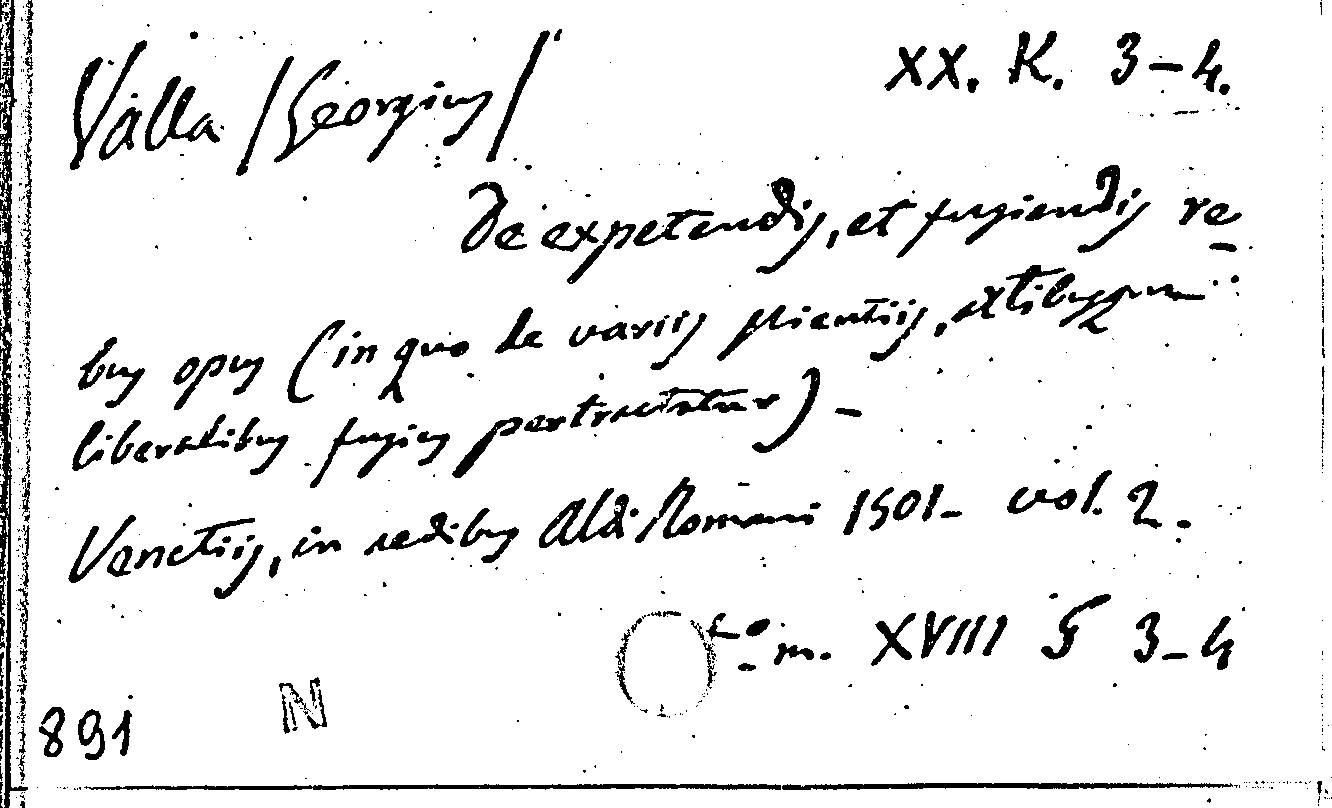 Valla /Georgius/ XX. K. 3-4.
De expetendis, et fugiendis re
bus opus (in quo de variis scientiis, artibusque
liberalibus fusius pertractatur) -
Venetiis, in aedibus Aldi Romani 1501 - vol. 2.
m. XVIII 3-4
891 N